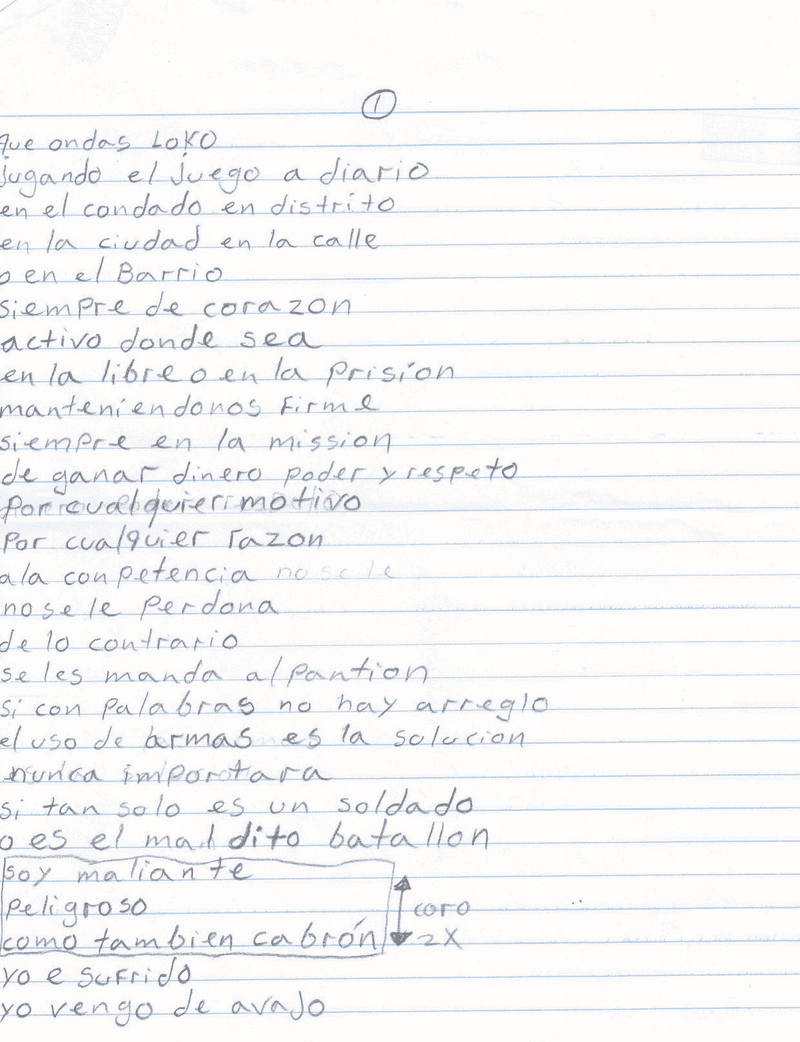 ①
Que ondas LoKO
jugando el juego a diario
en el condado en distrito
en la ciudad en la calle
o en el Barrio
siempre de corazon
activo donde sea
en la libre o en la prision
manteniendonos firme
siempre en la mission
de ganar dinero poder y respeto
por cualquier motivo
por cualquier razon
ala conpetencia no se le
no se le perdona
de lo contrario
se les manda al pantion
si con palabras no hay arreglo
el uso de armas es la solucion
nunca imporotara
si tan solo es un soldado
o es el maldito batallon
soy maliante
peligroso
como tambien cabrón
coro
2X
yo e sufrido
yo vengo de avajo